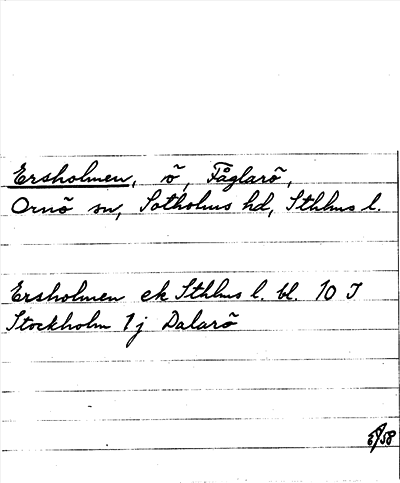 Ersholmen, ö, Fåglarö,
Ornö sn, Sotholms hd, Sthlms l.
Ersholmen ek Sthlms l. bl. 10 J
Stockholm 1 j Dalarö